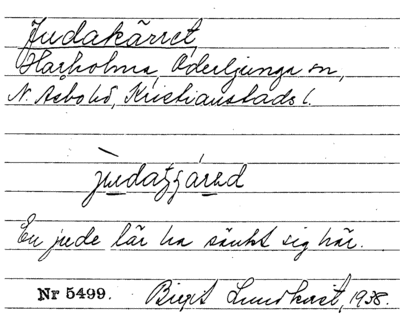 Judakärret
Harholma, Oderljunga sn,
N. Åsbo hd, Kristianstads l.
En jude lär ha sänkt sig här.
Nr 5499. Birgit Lundkvist, 1938.